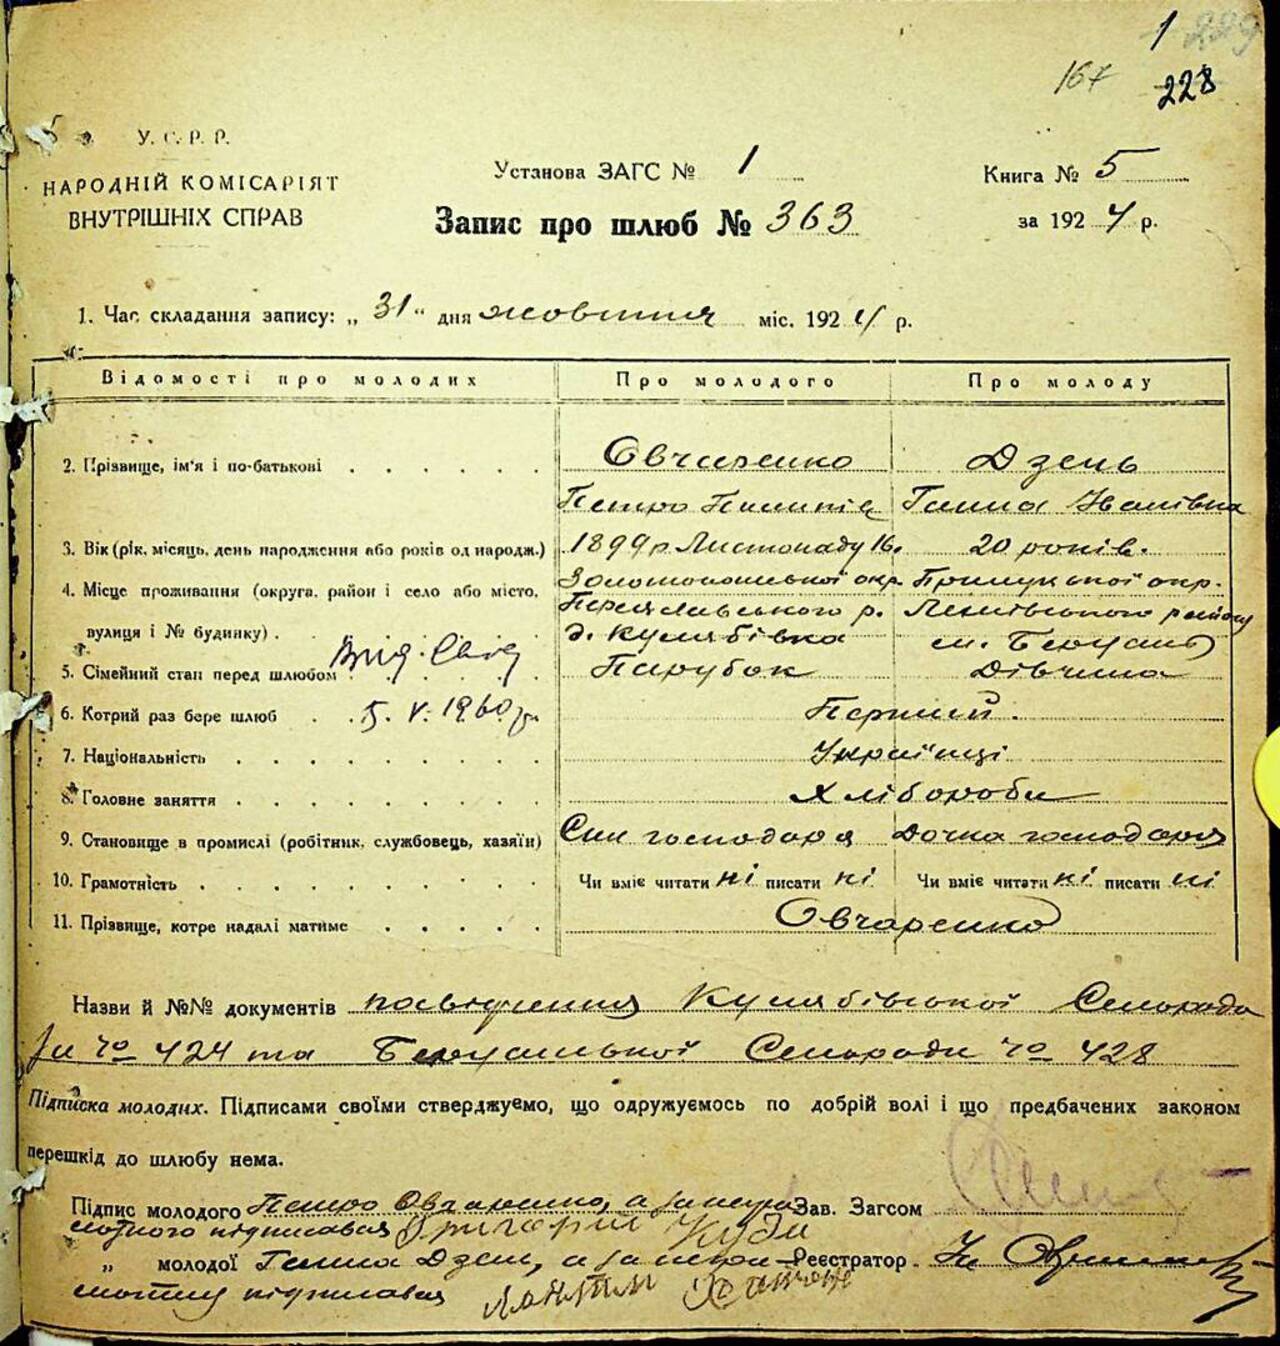 1 229
167 228
У. С. Р. Р.
НАРОДНІЙ КОМІСАРІЯТ
ВНУТРІШНІХ СПРАВ
Установа ЗАГС № 1
Запис про шлюб № 363
Книга № 5
за 1924 р.
1. Час складання запису: „31“ дня жовтня міс. 1924 р.
Відомості про молодих Про молодого Про молоду
2. Прізвище, ім'я і по-батькові Овчаренко Дзень
Петро Пилипів Ганна Іванівна
3. Вік (рік, місяць, день народження або років од народж.) 1899 р. Листопаду 16. 20 років.
4. Місце проживання (округа, район і село або місто, Золотоношської окр. Прилуцької окр.
Переяславського р. району
вулиця і № будинку) д. Кулябівка
5. Сімейний стан перед шлюбом Парубок Дівчина
6. Котрий раз бере шлюб 5. V. 1960 р. Перший.
7. Національність Українці
8. Головне заняття Хлібороби
9. Становище в промислі (робітник, службовець, хазяїн) Син господаря Дочка господаря
10. Грамотність Чи вміє читати ні писати ні Чи вміє читати ні писати ні
11. Прізвище, котре надалі матиме Овчаренко
Назви й №№ документів посвідчення Кулябівської Сельради
за № 424 та Сельради № 428
Підписка молодих. Підписами своїми стверджуємо, що одружуємось по добрій волі і що предбачених законом
перешкід до шлюбу нема.
Підпис молодого Петро Овчаренко, а за негра Зав. Загсом
мотного підписався Григорій Куди
„ молодої Ганна Дзень, а за негра Реєстратор
мотну підписався